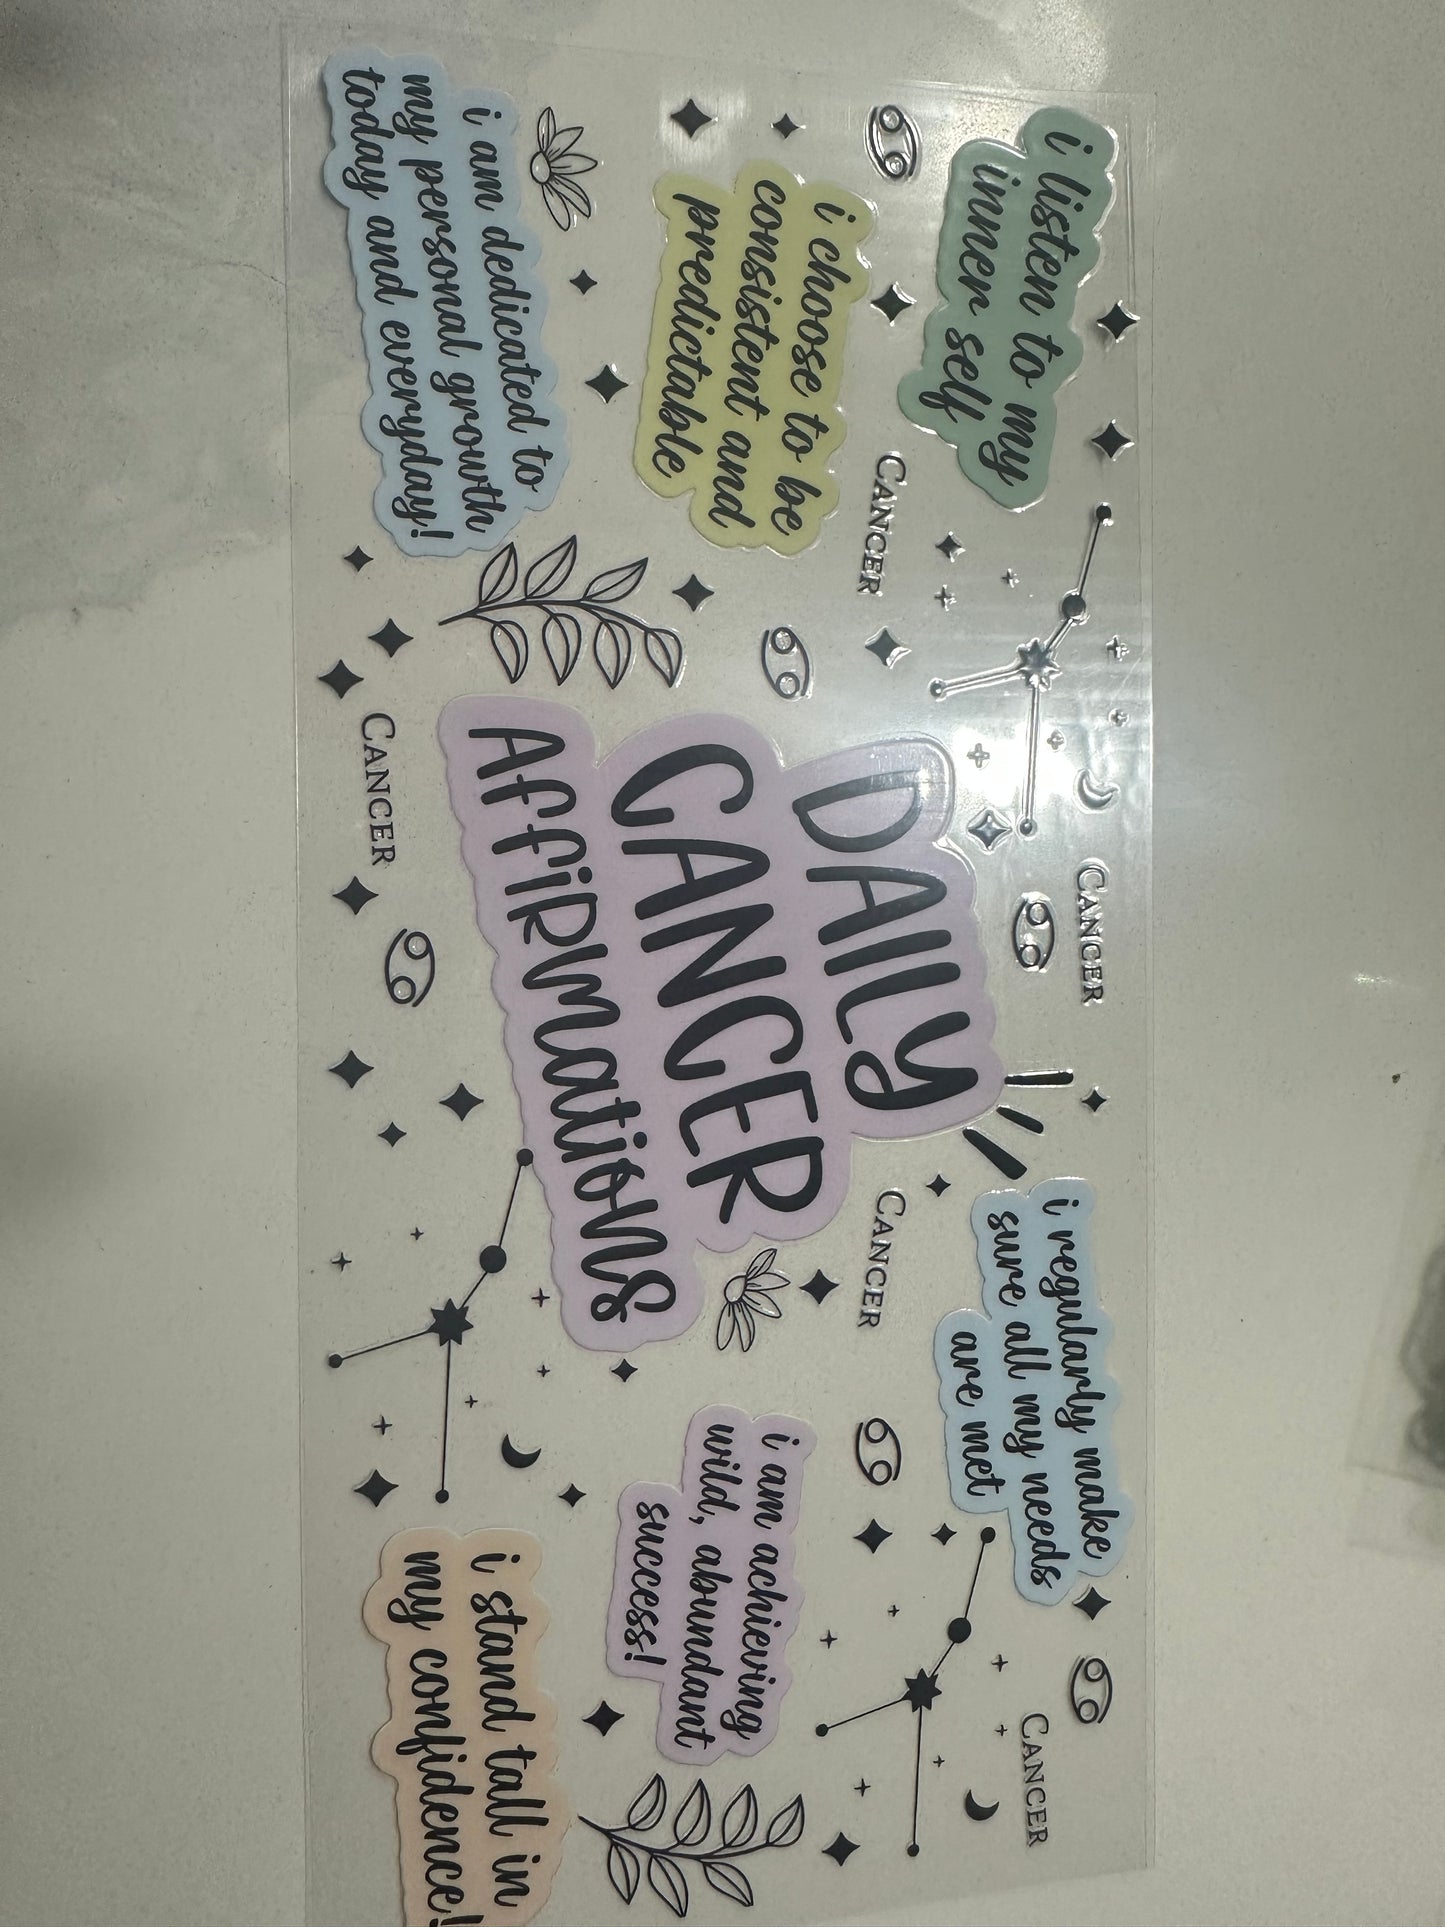 i listen to my
inner self
i choose to be
consistent and
predictable
i am dedicated to
my personal growth
today and everyday!
CANCER
CANCER
CANCER
DAILY
CANCER
AFFIRMATIONS
CANCER
i regularly make
sure all my needs
are met
i am achieving
wild, abundant
success!
CANCER
i stand tall in
my confidence!